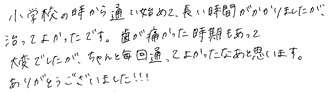 小学校の時から通い始めて、長い時間がかかりましたが、
治ってよかったです。歯が痛かった時期もあって
大変でしたが、ちゃんと毎回通ってよかったなあと思います。
ありがとうございました!!!